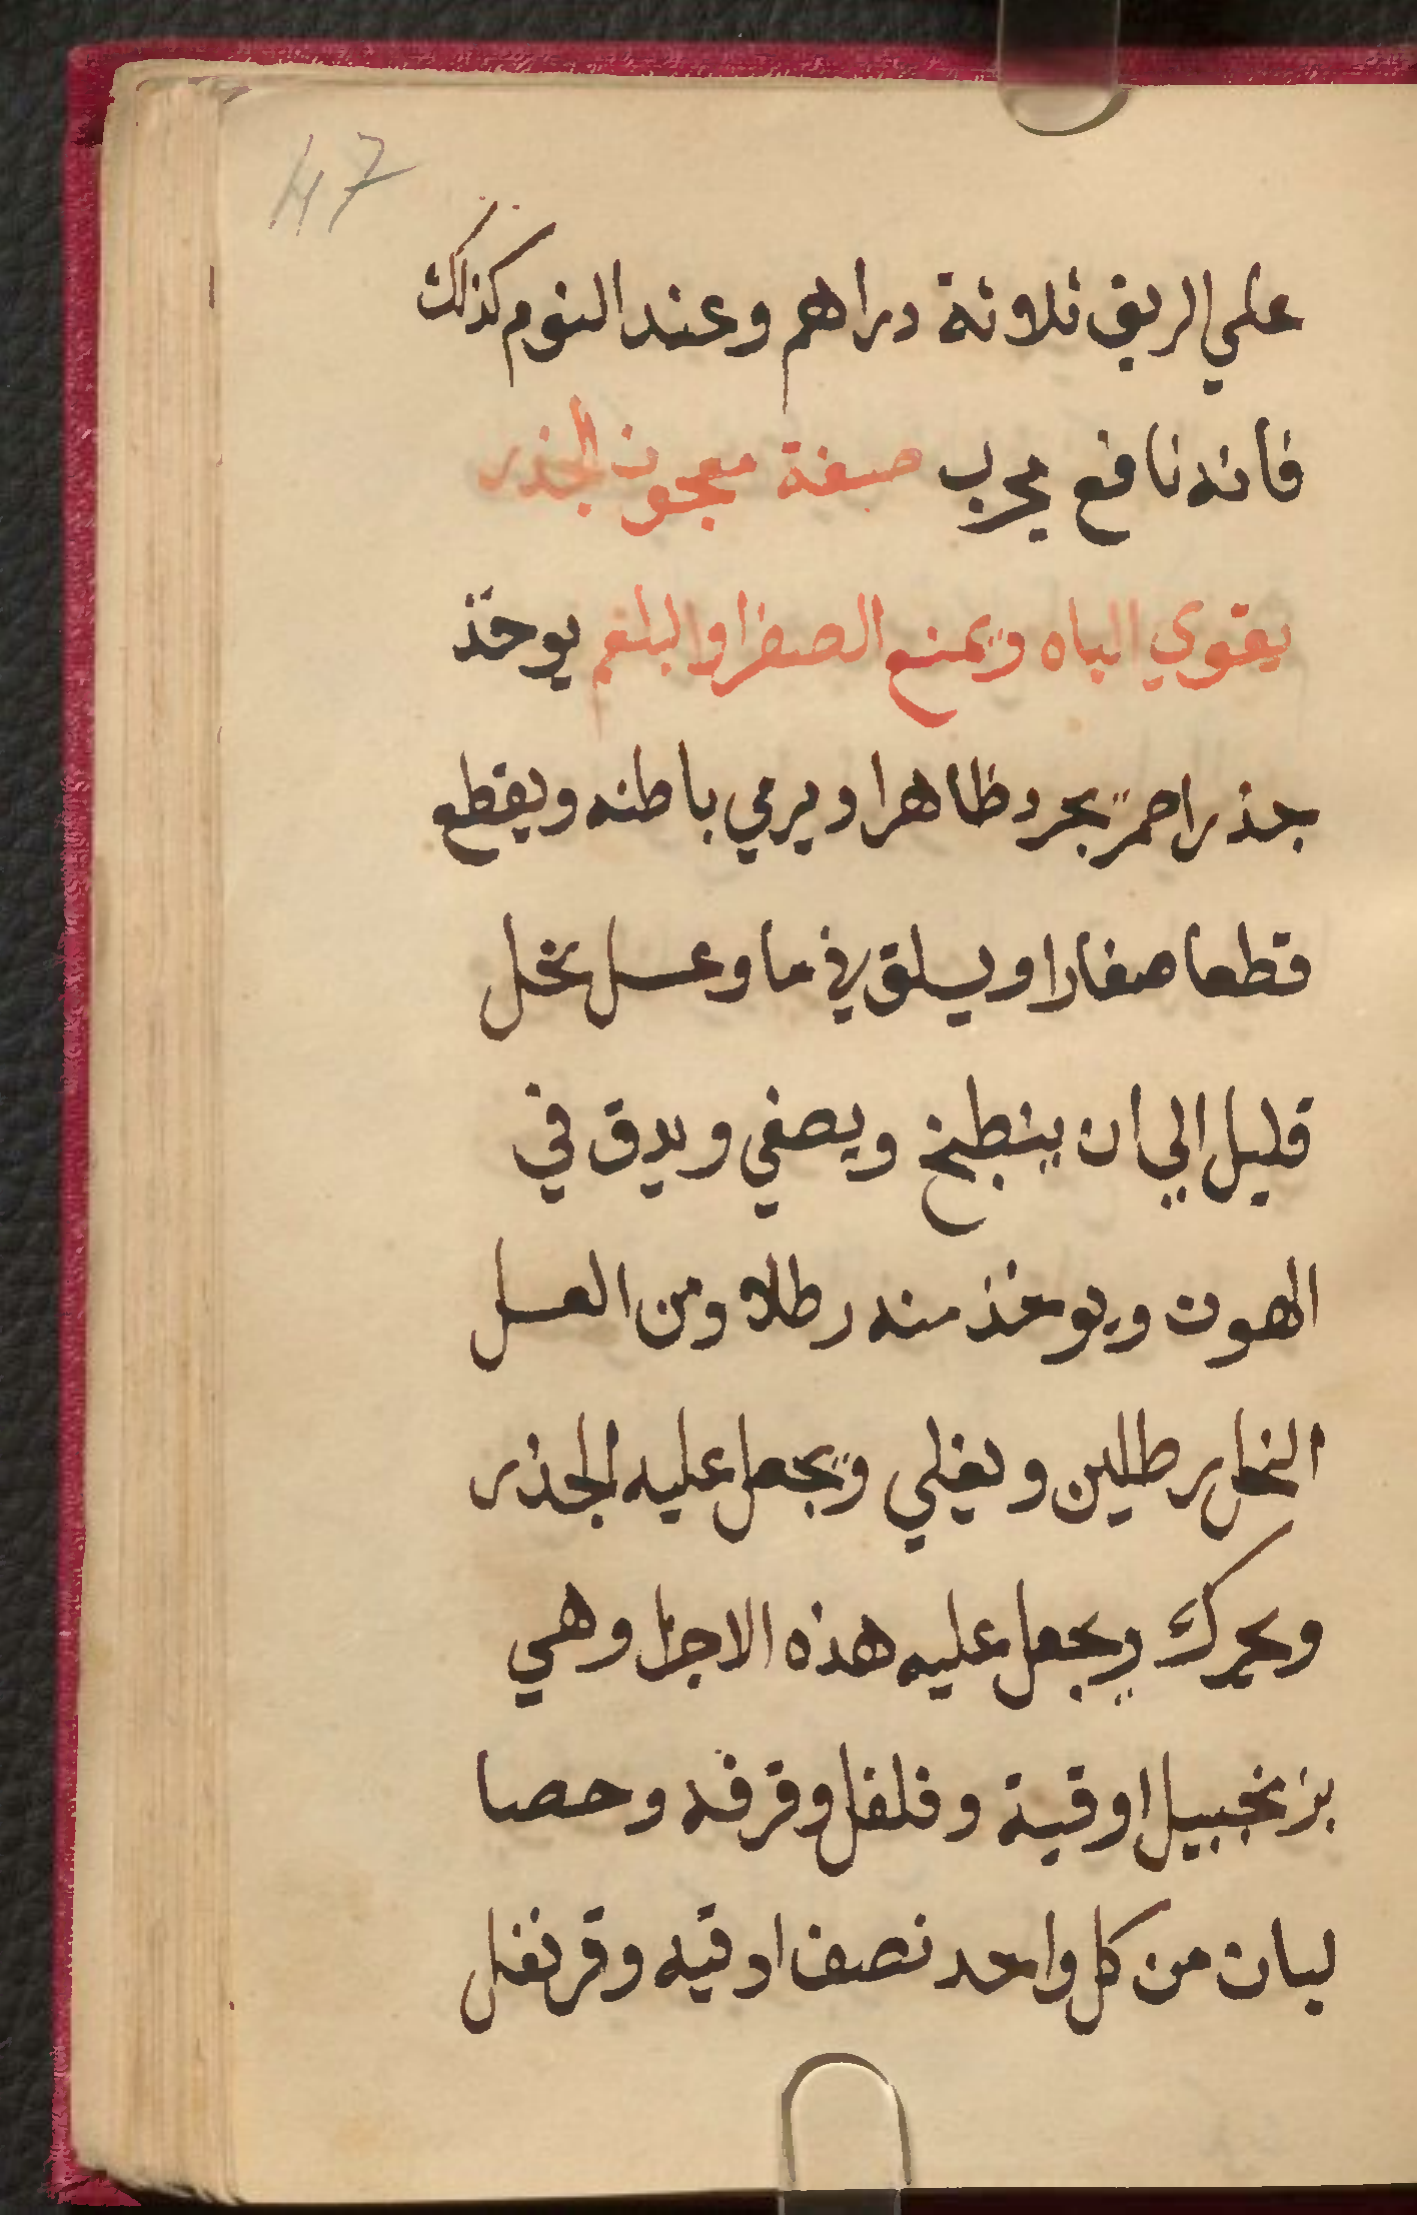 47
علي الريق ثلاوثة دراهم وعند النوم كذلك
فانه نافع مجرب صبغة معجون الجذر
يقوي الباه ويمنع الصفرا والبلغم يوخذ
جذر احمر يجرد ظاهرا ويرمي باطنه ويقطع
قطعا صغارا ويسلق في ما وعسل نخل
قليل الي ان ينطبخ ويصفي ويدق في
الهون ويوخذ منه رطلا ومن العسل
النحل رطلين ويغلي ويجعل عليه الجذر
ويحرك ويجعل عليه هذه الاجزا وهي
زنجبيل اوقية وفلفل وقرفه وحصا
لبان من كل واحد نصف اوقيه وقرنفل